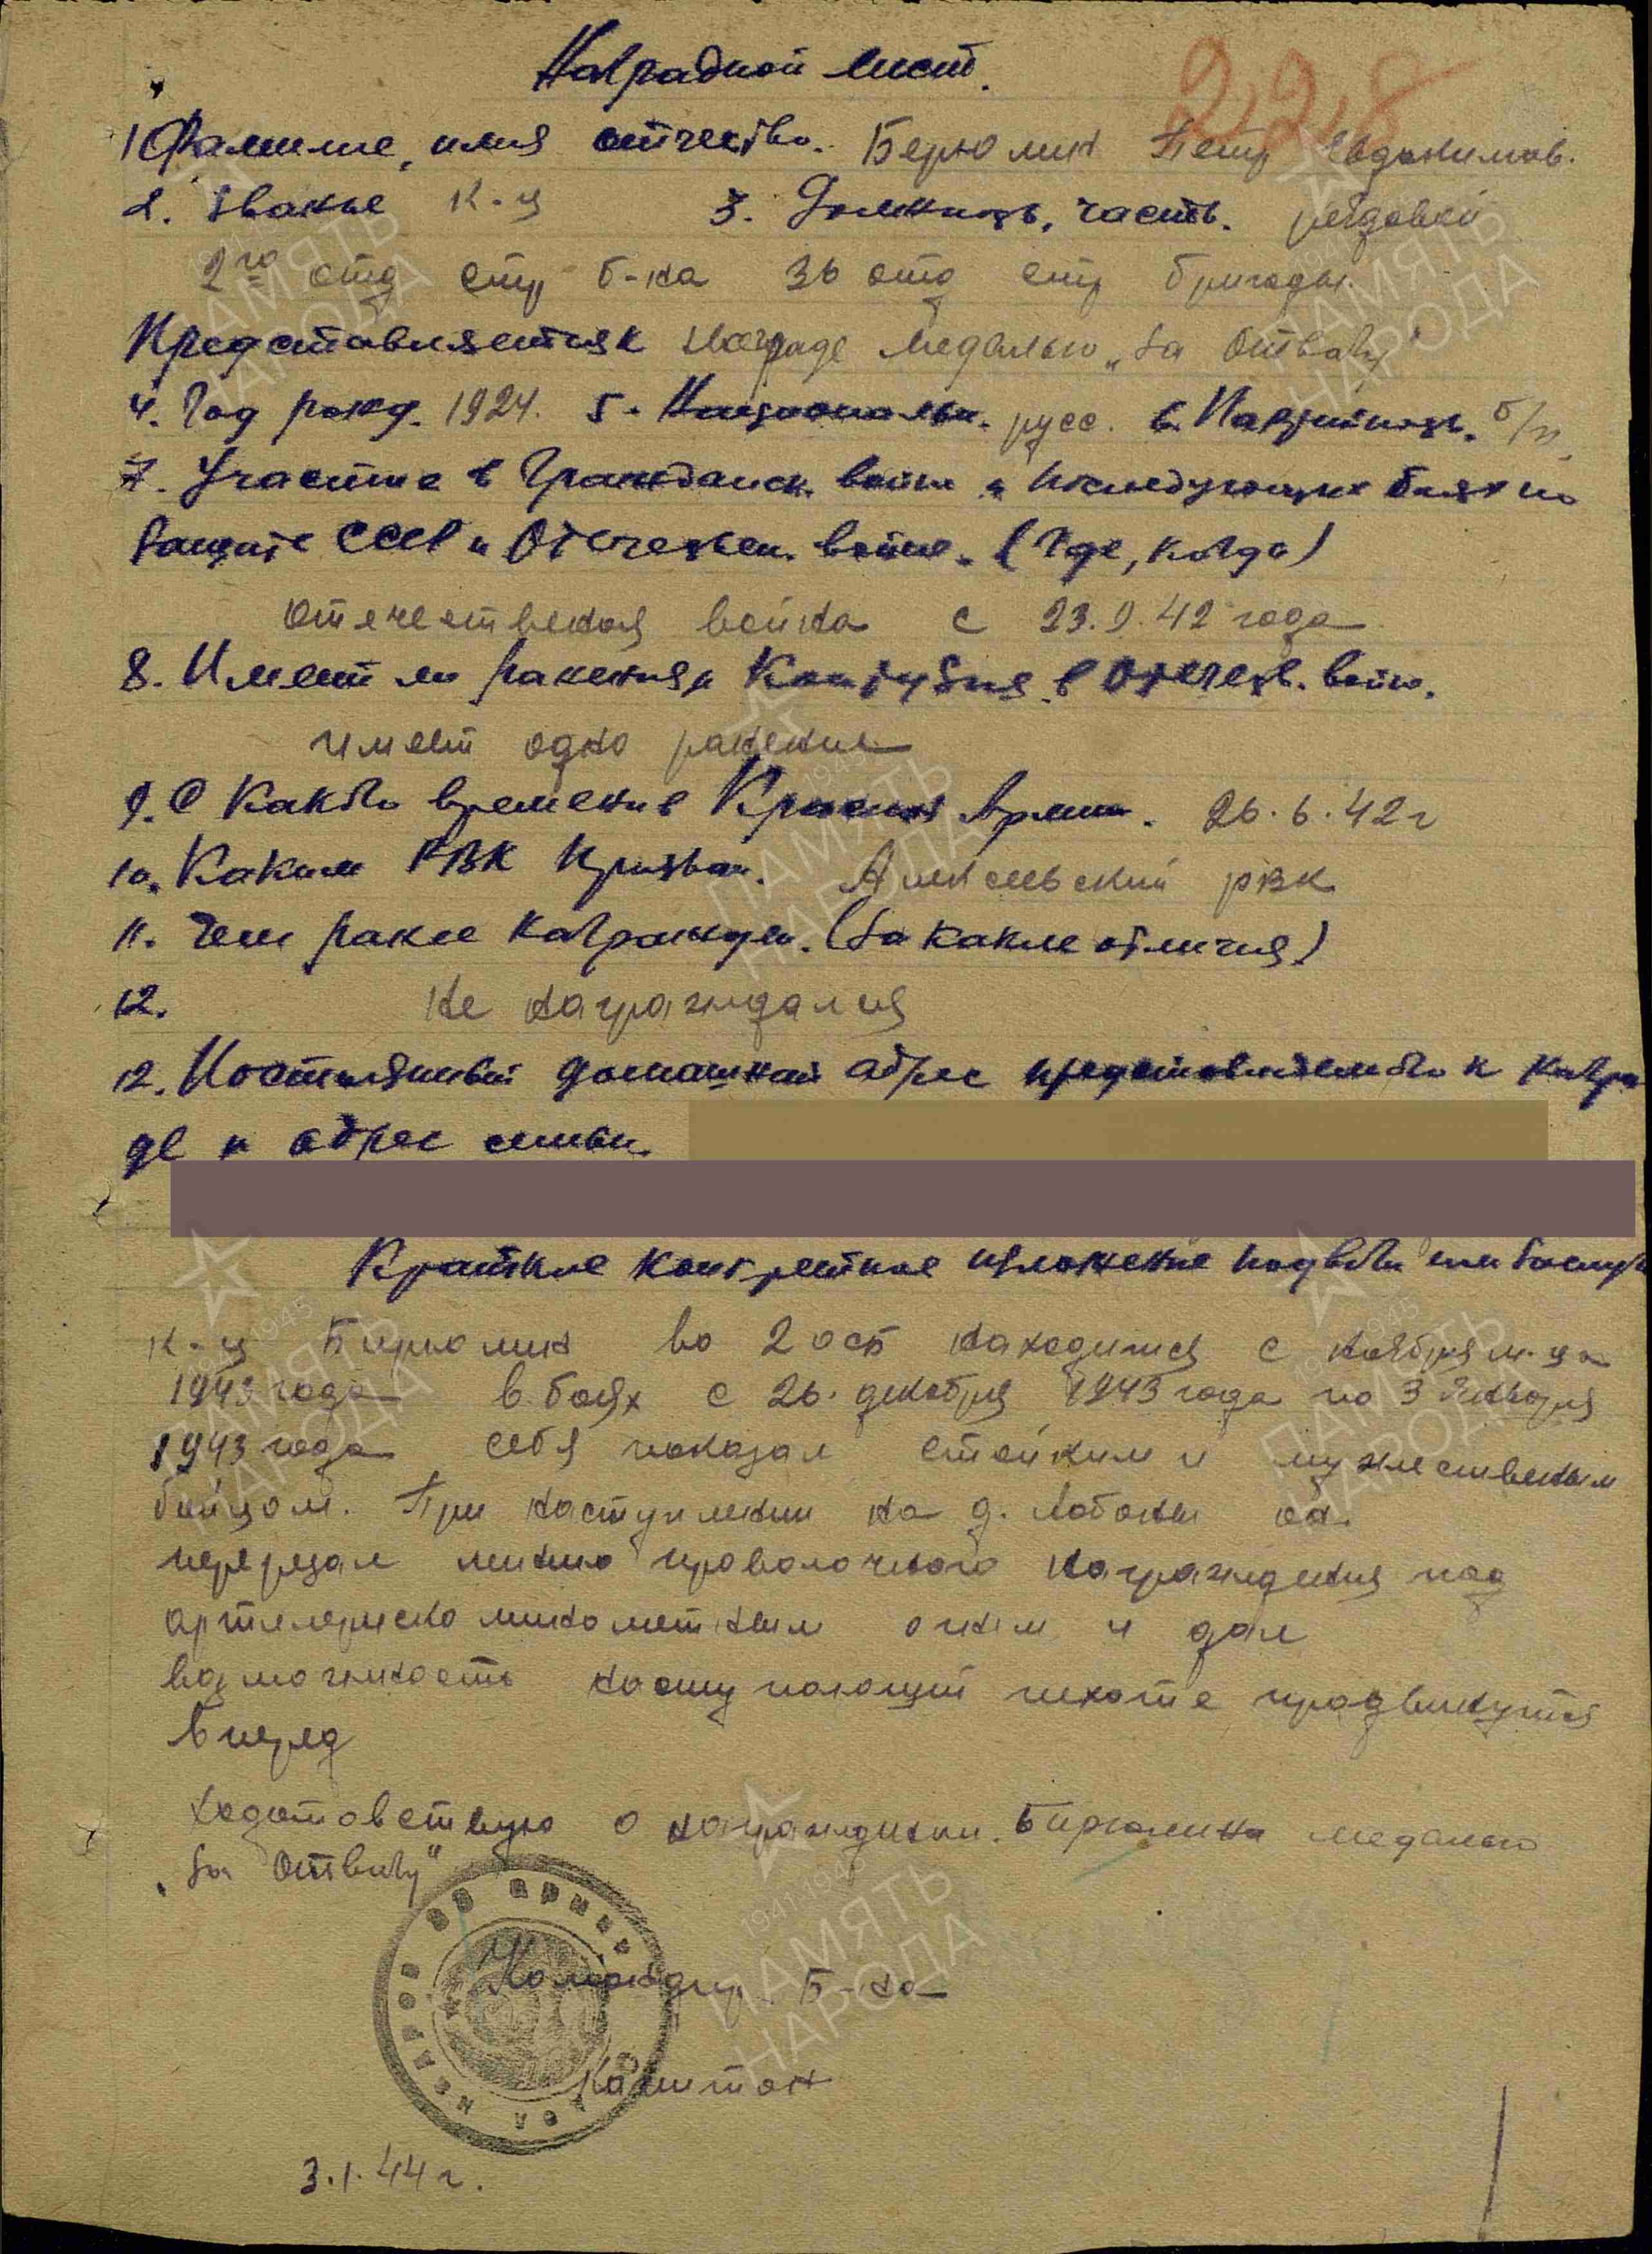 Наградной лист.
228
1 Фамилие, имя отчество. Берюлин Петр Евдокимов.
2. Званье К-ц 3. Должность, часть. рядовой
2го отд стр б-на 36 отд стр бригады.
Представляется к награде медалью „За Отвагу"
4. Год рожд. 1924. 5. Националн. русс. 6. Партийность. б/п
7. Участие в Гражданск. войне и последующих боях по
защите СССР и Отечествен. войне. (Где, когда)
Отечественая война с 23.9.42 года
8. Имеет ли ранения и Контузия в Отечеств. войне.
имеет одно ранение
9. С какого времени в Красной Армии. 26.6.42 г
10. Каким РВК призван. РВК
11. Чем ранее награжден. (За какие отличия)
12. Не награждался
12. Постоянный домашний адрес представляемого к награ
де и адрес семьи.
Краткие конкретное изложение подвига или заслуг
К-ц Бирюлин во 2 осб находился с ноября м-ца
1943 года в боях с 26. декабря 1943 года по 3 Января
1943 года себя показал стойким и мужественым
бойцом. При наступлении на д. Лобаны он.
перерезал линию проволочного награждения под
артилериско минометным огнем и дал
возможность наступающий пехоте продвинутся
Вперед
Ходотовствую о награждении. Бирюлина медалью
„За Отвагу"
Командир Б-на
Капитан
3.1.44 г.
1941-1945
ПАМЯТЬ
НАРОДА